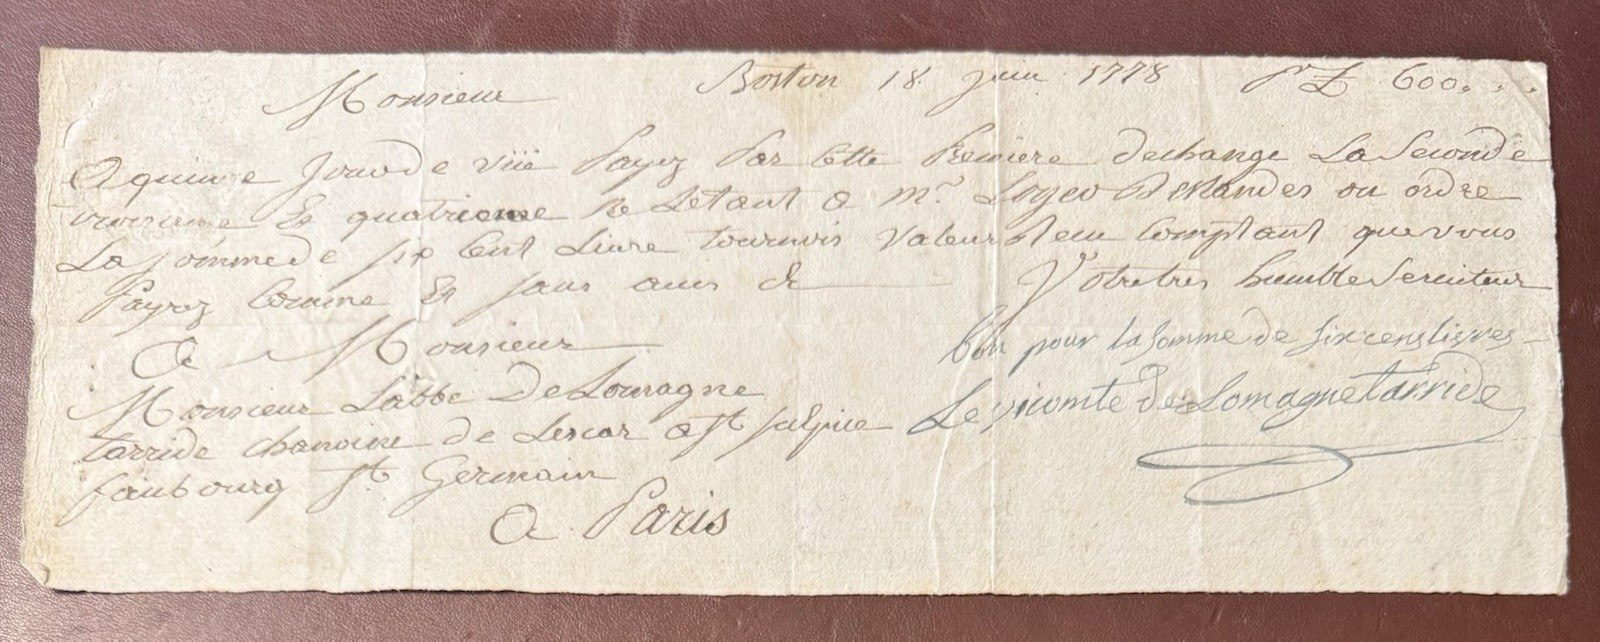 Boston 18 juin 1778 pr £ 600...
Monsieur
A quinze Jour de viüe Payez Par Cette Premiere dechange La Seconde
troisieme Et quatrieme ne Letant a Mr. Loyeo Deslandes ou ordre
La Somme de six Cent Livre tournois valeur Reçeu Comptant que vous
Payrez Comme Et sans avis de
Votre tres humble Serviteur
A Monsieur
bon pour la somme de six cens livres
Monsieur Labbe De Lomagne
Le vicomte de Lomagne tarride
tarride chanoine de Lescar a St Sulpice
faubourg St Germain
A Paris